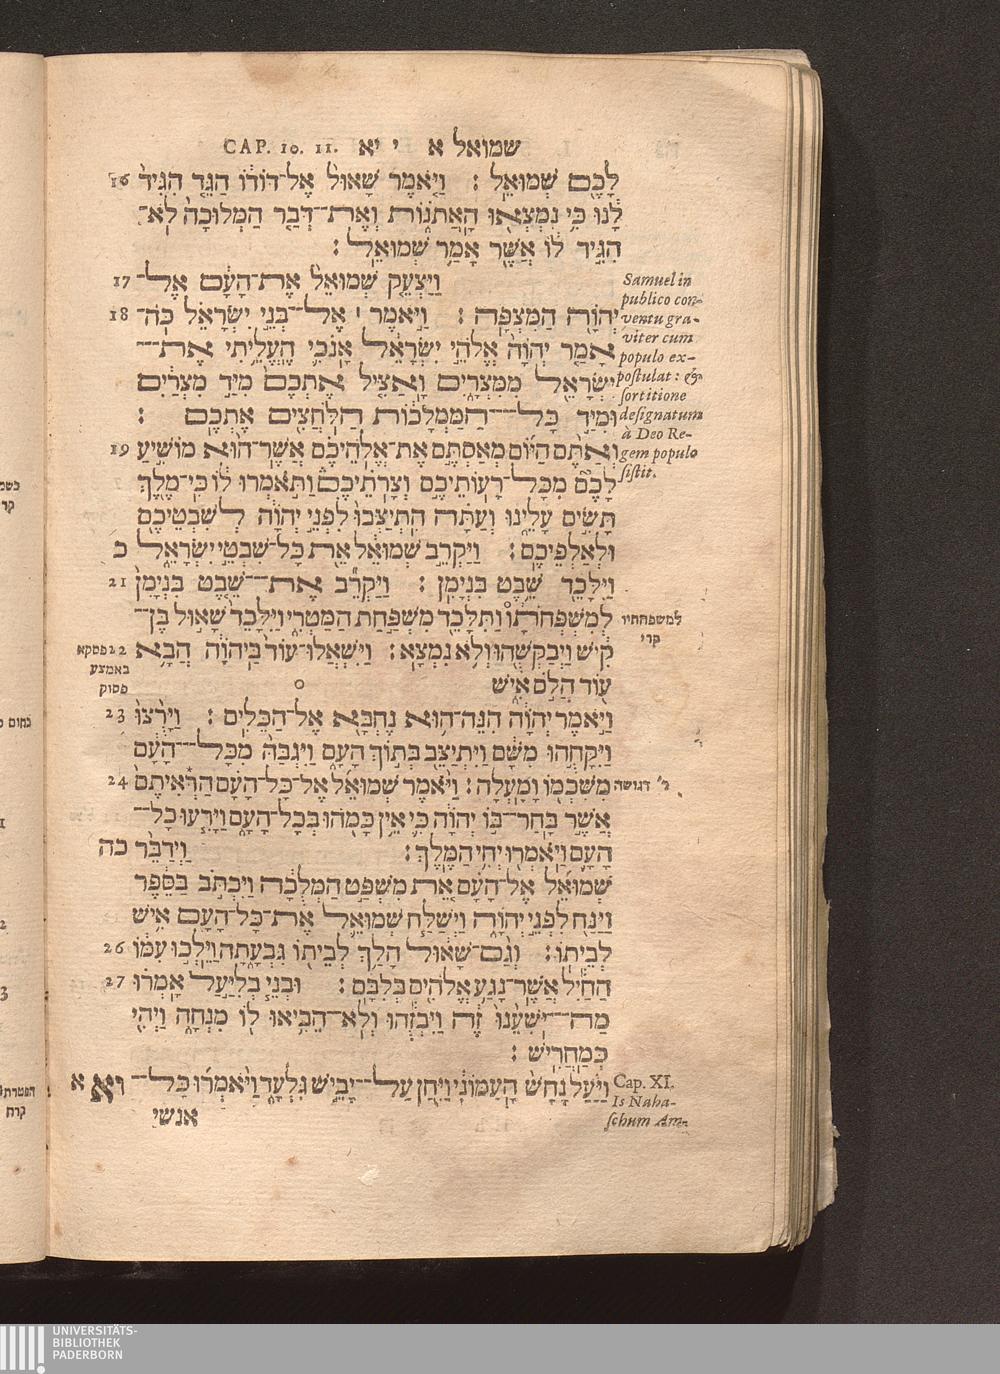 שמואל א י יא CAP. 10. 11.
לָכֶם שְׁמוּאֵל : וַיֹּאמֶר שָׁאוּל אֶל־דּוֹדוֹ הַגֵּד הִגִּיד 16
לָנוּ כִּי נִמְצְאוּ הָאֲתֹנוֹת וְאֶת־דְּבַר הַמְּלוּכָה לֹא־
הִגִּיד לוֹ אֲשֶׁר אָמַר שְׁמוּאֵל :
וַיַּצְעֵק שְׁמוּאֵל אֶת־הָעָם אֶל־ 17
יְהוָה הַמִּצְפָּה : וַיֹּאמֶר ׀ אֶל־בְּנֵי יִשְׂרָאֵל כֹּה־ 18
אָמַר יְהוָה אֱלֹהֵי יִשְׂרָאֵל אָנֹכִי הֶעֱלֵיתִי אֶת־
יִשְׂרָאֵל מִמִּצְרָיִם וָאַצִּיל אֶתְכֶם מִיַּד מִצְרַיִם
וּמִיַּד כָּל־הַמַּמְלָכוֹת הַלֹּחֲצִים אֶתְכֶם :
וְאַתֶּם הַיּוֹם מְאַסְתֶּם אֶת־אֱלֹהֵיכֶם אֲשֶׁר־הוּא מוֹשִׁיעַ 19
לָכֶם מִכָּל־רָעוֹתֵיכֶם וְצָרֹתֵיכֶם וַתֹּאמְרוּ לוֹ כִּי־מֶלֶךְ
תָּשִׂים עָלֵינוּ וְעַתָּה הִתְיַצְּבוּ לִפְנֵי יְהוָה לְשִׁבְטֵיכֶם
וּלְאַלְפֵיכֶם : וַיַּקְרֵב שְׁמוּאֵל אֵת כָּל־שִׁבְטֵי יִשְׂרָאֵל כ
וַיִּלָּכֵד שֵׁבֶט בִּנְיָמִן : וַיַּקְרֵב אֶת־שֵׁבֶט בִּנְיָמִן 21
לְמִשְׁפְּחֹתָו וַתִּלָּכֵד מִשְׁפַּחַת הַמַּטְרִי וַיִּלָּכֵד שָׁאוּל בֶּן־
קִישׁ וַיְבַקְשֻׁהוּ וְלֹא נִמְצָא : וַיִּשְׁאֲלוּ־עוֹד בַּיהוָה הֲבָא 22
עוֹד הֲלֹם אִישׁ ○
וַיֹּאמֶר יְהוָה הִנֵּה־הוּא נֶחְבָּא אֶל־הַכֵּלִים : וַיָּרֻצוּ 23
וַיִּקָּחֻהוּ מִשָּׁם וַיִּתְיַצֵּב בְּתוֹךְ הָעָם וַיִּגְבַּהּ מִכָּל־הָעָם
מִשִּׁכְמוֹ וָמָעְלָה : וַיֹּאמֶר שְׁמוּאֵל אֶל־כָּל־הָעָם הַרְּאִיתֶם 24
אֲשֶׁר בָּחַר־בּוֹ יְהוָה כִּי אֵין כָּמֹהוּ בְּכָל־הָעָם וַיָּרִעוּ כָל־
הָעָם וַיֹּאמְרוּ יְחִי הַמֶּלֶךְ : וַיְדַבֵּר כה
שְׁמוּאֵל אֶל־הָעָם אֵת מִשְׁפַּט הַמְּלֻכָה וַיִּכְתֹּב בַּסֵּפֶר
וַיַּנַּח לִפְנֵי יְהוָה וַיְשַׁלַּח שְׁמוּאֵל אֶת־כָּל־הָעָם אִישׁ
לְבֵיתוֹ : וְגַם־שָׁאוּל הָלַךְ לְבֵיתוֹ גִּבְעָתָה וַיֵּלְכוּ עִמּוֹ 26
הַחַיִל אֲשֶׁר־נָגַע אֱלֹהִים בְּלִבָּם : וּבְנֵי בְלִיַּעַל אָמְרוּ 27
מַה־יֹּשִׁעֵנוּ זֶה וַיִּבְזֻהוּ וְלֹא־הֵבִיאוּ לוֹ מִנְחָה וַיְהִי
כְּמַחֲרִישׁ :
וַיַּעַל נָחָשׁ הָעַמּוֹנִי וַיִּחַן עַל־יָבֵישׁ גִּלְעָד וַיֹּאמְרוּ כָּל־ יא א
אנשי
Samuel in
publico con-
ventu gra-
viter cum
populo ex-
postulat : &
sortitione
designatum
à Deo Re-
gem populo
sistit.
למשפחתיו
קרי
פסקא
באמצע
פסוק
ר' דגושה
Cap. XI.
Is Naha-
schum Am-
הפטרת
קרח
UNIVERSITÄTS-
BIBLIOTHEK
PADERBORN